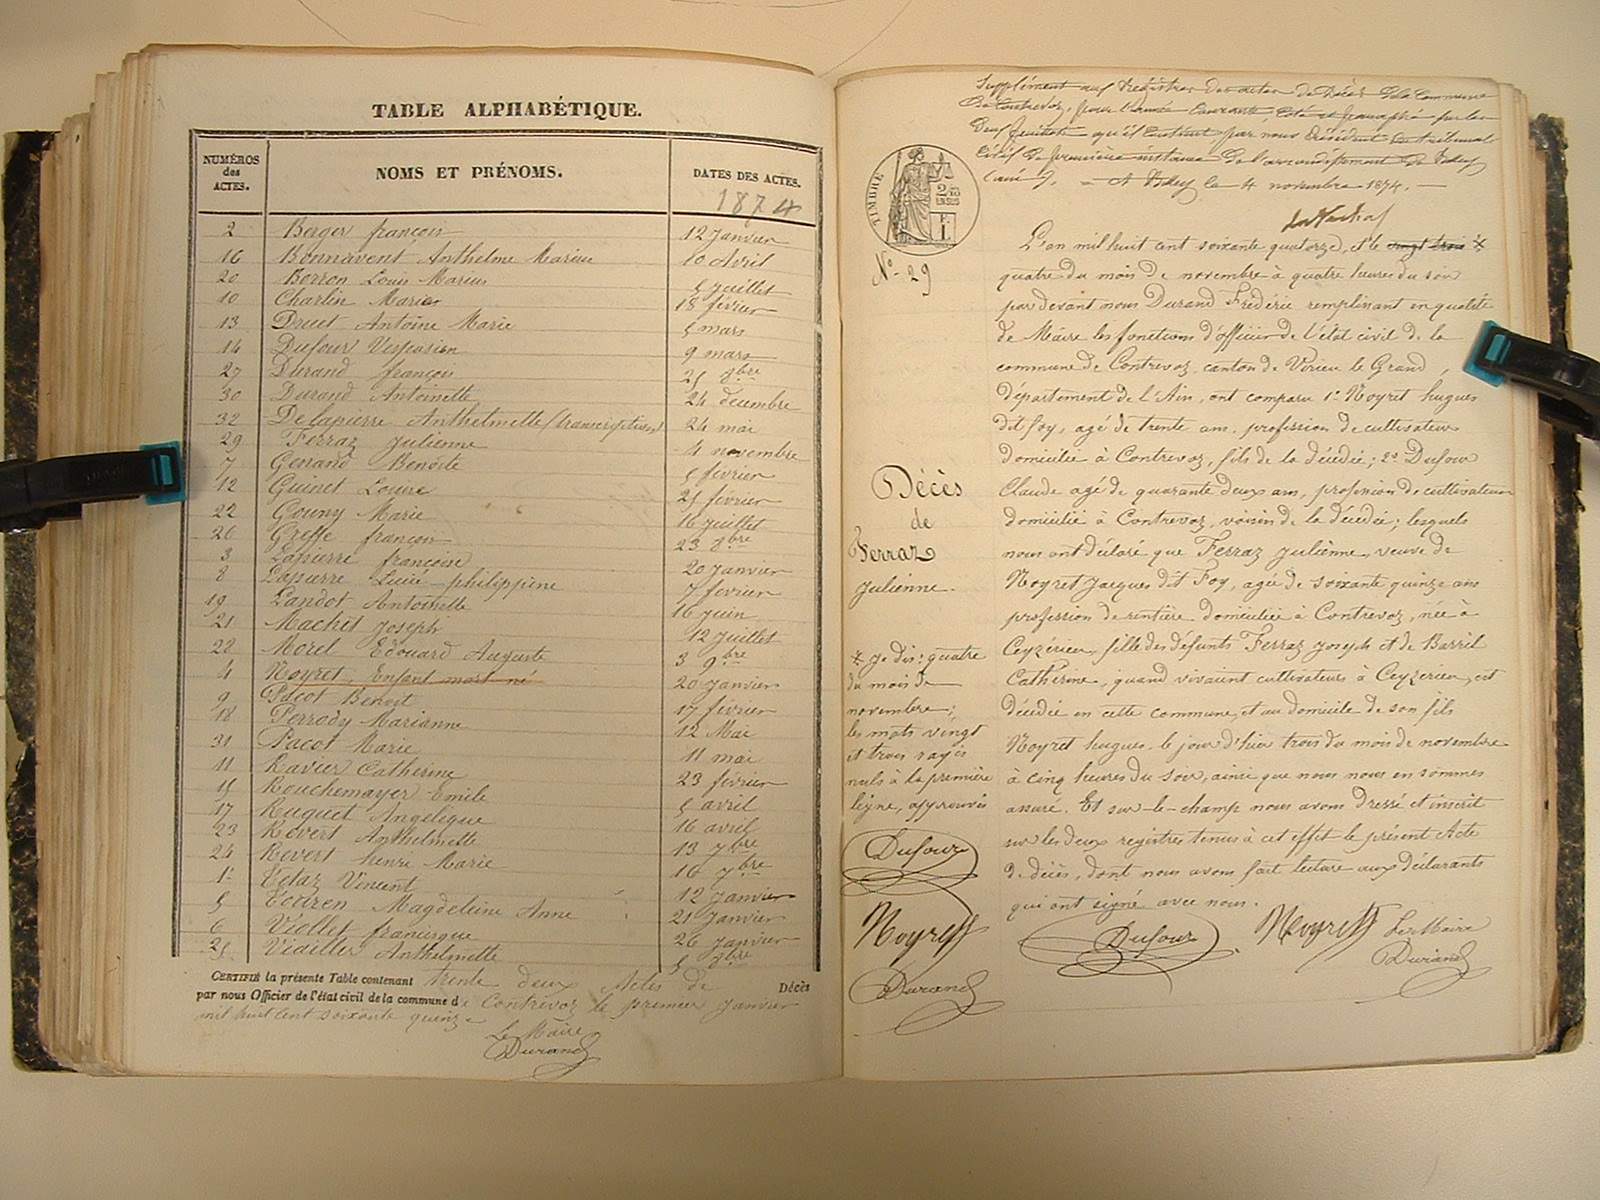 TABLE ALPHABÉTIQUE.
NUMÉROS des ACTES.
NOMS ET PRÉNOMS.
DATES DES ACTES.
1874
2 Berger françois 12 Janvier
16 Bonnavent Anthelme Marius 10 Avril
20 Borron Louis Marius 5 juillet
10 Charlin Marie 18 février
13 Druet Antoine Marie 5 mars
14 Dufour Vespasien 9 mars
27 Durand françois 25 8bre
30 Durand Antoinette 24 décembre
32 Delapierre Anthelmette (transcription) 24 mai
29 Ferraz Julienne 4 novembre
7 Gerrand Benoîte 5 février
12 Guinet Louise 25 février
22 Gouny Marie 16 juillet
26 Griffe françois 23 8bre
3 Lapierre françoise 20 janvier
8 Lapierre Luise philippine 7 fevrier
19 Landot Antoinette 16 juin
21 Machit Joseph 12 juillet
28 Morel Edouard Auguste 3 9bre
4 Noyret, Enfant mort né 20 janvier
9 Pacot Benoit 17 fevrier
18 Perrody Marianne 12 Mai
31 Pacot Marie 11 mai
11 Ravier Catherine 23 février
15 Rouchemayer Emile 5 avril
17 Ruguet Angelique 16 avril
23 Revert Anthelmette 13 7bre
24 Revert henri Marie 16 7bre
1r Tétaz Vincent 12 janvier
5 Magdeleine Anne 21 Janvier
6 Viollet francisque 26 janvier
25 Viailler Anthelmette 5 8bre
CERTIFIÉ la présente Table contenant trente deux Actes de Décès
par nous Officier de l'état civil de la commune de Contrevoz le premier janvier
mil huit cent soixante quinze
Le Maire
Durand
Supplément aux Registres des actes de Décès de la Commune
de Contrevoz, pour l'année courante, coté et paraphé par les
deux feuillets qu'il contient par nous Président du tribunal
civil de première instance de l'arrondissement de Belley
(ain). = A Belley le 4 novembre 1874. —
TIMBRE
N° 29
L'an mil huit cent soixante quatorze, et le vingt trois X
quatre du mois de novembre à quatre heures du soir
par devant nous Durand Frédéric remplissant en qualité
de Maire les fonctions d'officier de l'état civil de la
commune de Contrevoz, canton de Virieu le Grand,
département de l'Ain, ont comparu 1° Noyret hugues
dit foy, agé de trente ans, profession de cultivateur
domicilié à Contrevoz, fils de la décédée; 2° Dufour
Claude agé de quarante deux ans, profession de cultivateur
domicilié à Contrevoz, voisin de la décédée; lesquels
nous ont déclaré que Ferraz Julienne, veuve de
Noyret Jacques dit Foy, agée de soixante quinze ans
profession de rentière domiciliée à Contrevoz, née à
Ceyzérieu, fille des défunts Ferraz Joseph et de Barril
Catherine, quand vivaient cultivateurs à Ceyzerieu, est
décédée en cette commune, et au domicile de son fils
Noyret hugues le jour d'hier trois du mois de novembre
à cinq heures du soir, ainsi que nous nous en sommes
assuré. Et sur-le-champ nous avons dressé et inscrit
sur les deux registres tenus à cet effet le présent Acte
de décès, dont nous avons fait lecture aux déclarants
qui ont signé avec nous.
Décès
de
Ferraz
Julienne.
X je dis: quatre
du mois de
novembre;
les mots vingt
et trois rayés
nuls à la première
ligne, approuvés
Dufour
Noyret
Durand
Dufour
Noyret
Le Maire
Durand